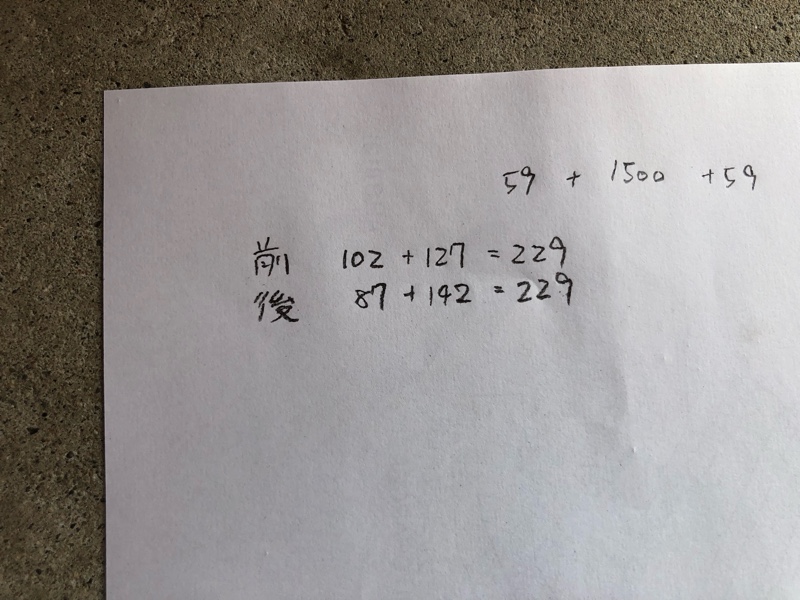 59 + 1500 + 59
前 102 + 127 = 229
後 87 + 142 = 229